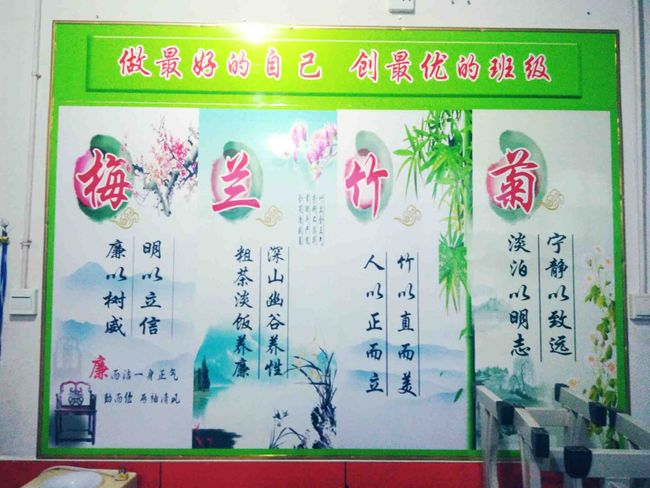 做最好的自己 创最优的班级
梅
明以立信
廉以树威
廉而洁一身正气
勤而俭 两袖清风
兰
深山幽谷养性
粗茶淡饭养廉
竹
竹以直而美
人以正而立
菊
宁静以致远
淡泊以明志